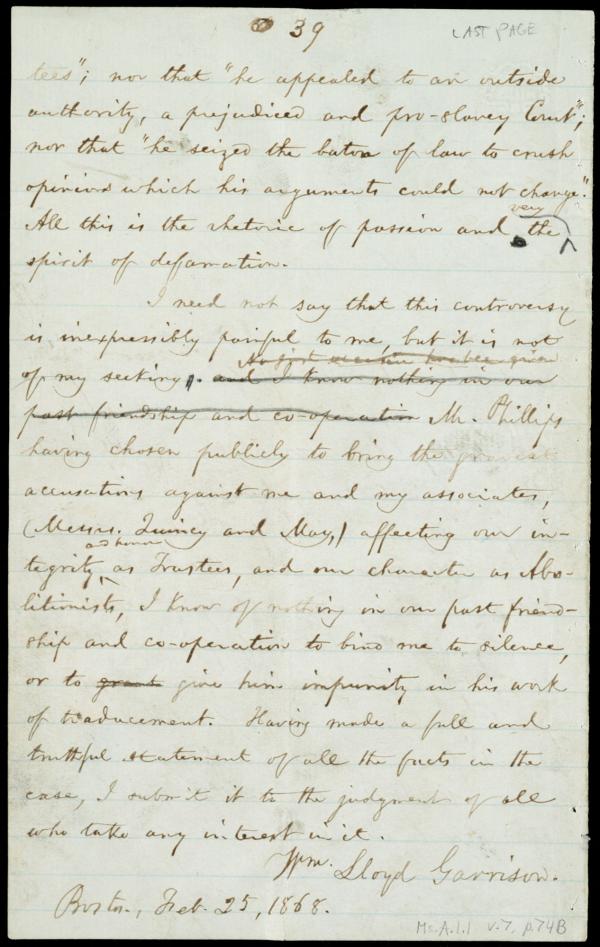 39
LAST PAGE
tees"; nor that "he appealed to an outside
authority, a prejudiced and pro-slavery Court";
nor that "he seized the baton of law to crush
opinions which his arguments could not change".
very
All this is the rhetoric of passion and the
spirit of defamation.
I need not say that this controversy
is inexpressibly painful to me, but it is not
of my seeking. and I know nothing in our
past friendship and co-operation Mr. Phillips
having chosen publicly to bring the gravest
accusations against me and my associates,
(Messrs. Quincy and May,) affecting our in-
and honor
tegrity, as Trustees, and our character as Abo-
litionists, I know of nothing in our past friend-
ship and co-operation to bind me to silence,
or to grant give him impunity in his work
of traducement. Having made a full and
truthful statement of all the facts in the
case, I submit it to the judgment of all
who take any interest in it.
Wm. Lloyd Garrison.
Boston, Feb. 25, 1868.
Ms.A.1.1 v.7, p.74B